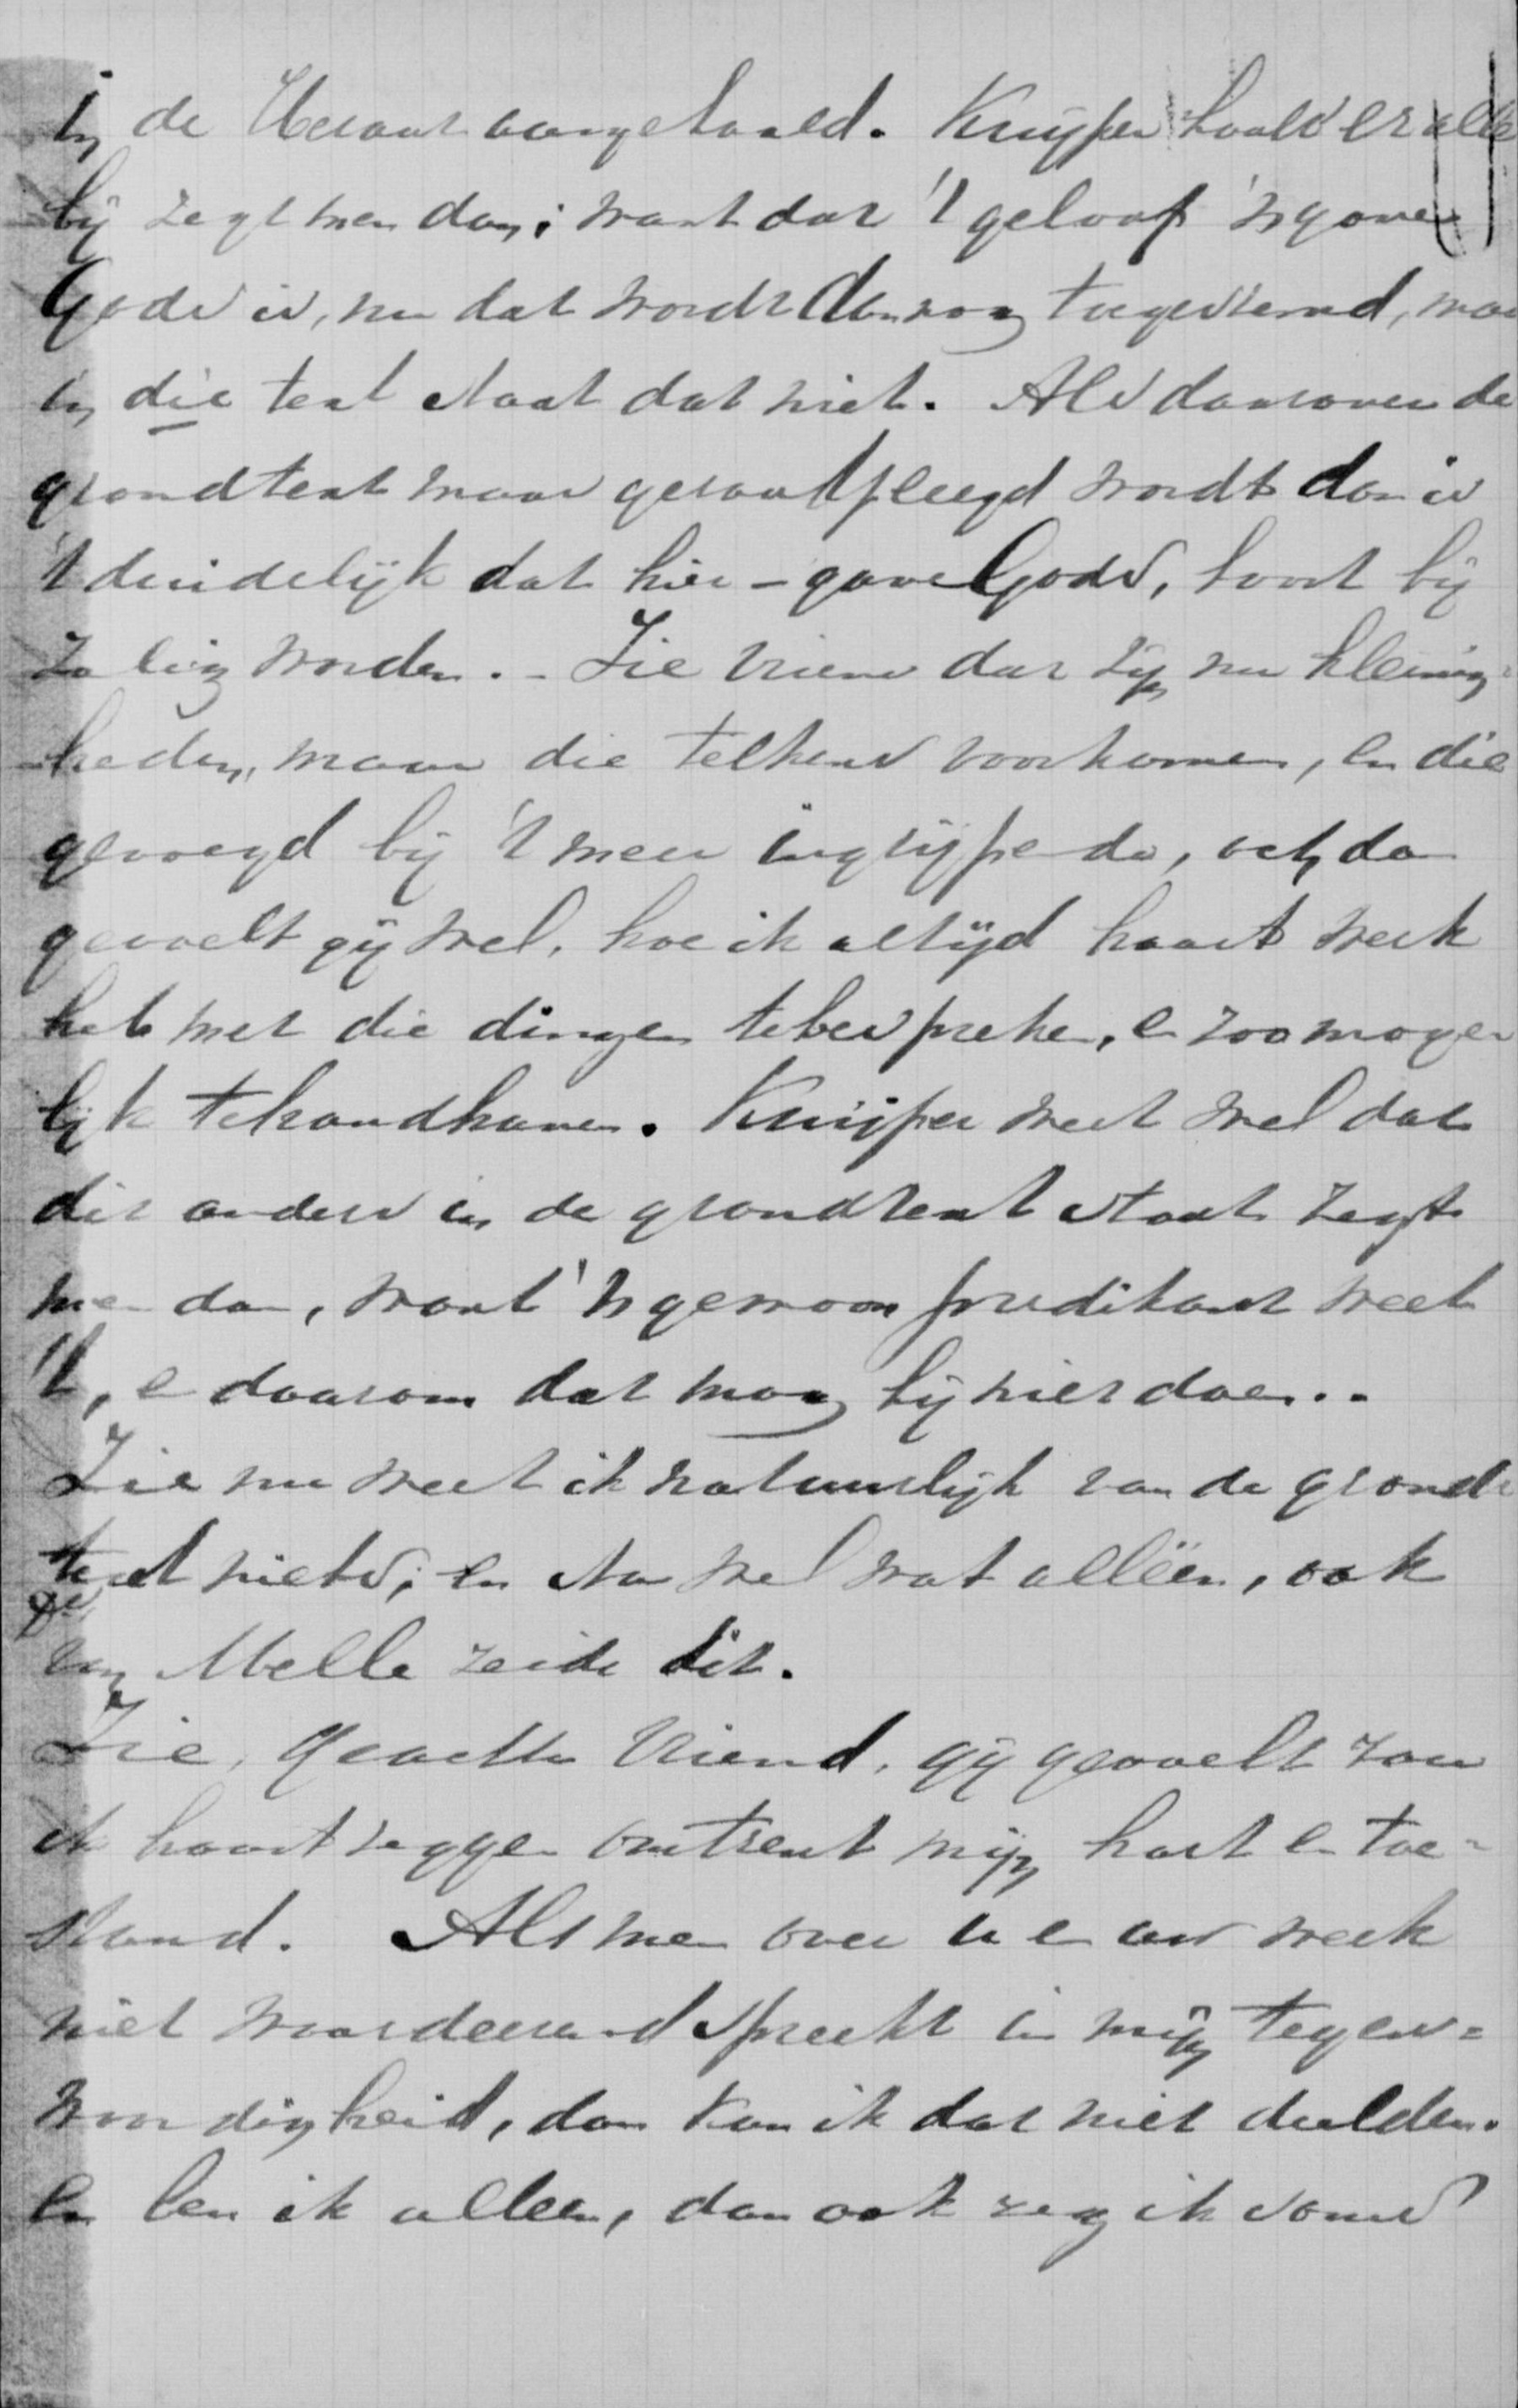 in de Heraut aangehaald. Kuijper haald er alle
bij zegt men dan; want dat 't geloof 'n gave
Gods is, nu dat wordt dan nog toegestemd, maa
in die text staat dat niet. Als daarover de
grondtext maar geraadpleegd wordt dan is
't duidelijk dat hier - gave Gods, hoort bij
zalig worden. - Zie vriend dat zijn nu kleinig-
heden, maar die telkens voorkomen, en die
gevoegd bij 't meer ingrijpende, och, dan
gevoelt gij wel, hoe ik altijd haast werk
heb met die dingen te bespreken, en zoo moge-
lijk te handhaven. Kuijper weet wel dat
dit anders in de grondtext staat zegt
men dan, want 'n gewoon predikant weet
't, en daarom dat mag hij niet doen..
Zie nu weet ik natuurlijk van de grond-
text niets, en sta wel wat alléén, ook
Ds van Melle zeide dit.
Zie, Geachte Vriend, gij gevoelt zou
ik haast zeggen omtrent mijn hart en toe-
stand. Als men over u en uw werk
niet waardeerend spreekt in mijn tegen=
woordigheid, dan kan ik dat niet dulden.
En ben ik alleen, dan ook zeg ik soms